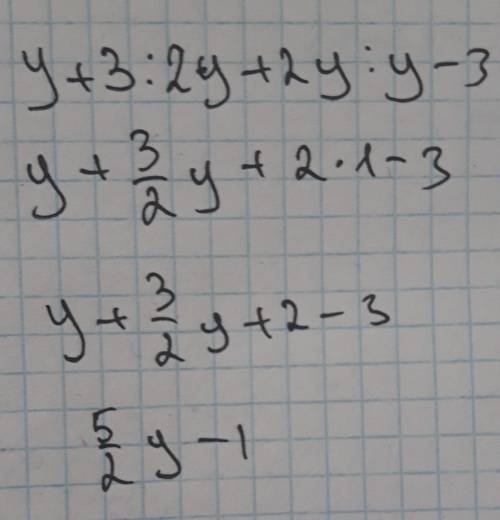 y + 3 : 2y + 2y : y - 3
y + 3/2 y + 2 · 1 - 3
y + 3/2 y + 2 - 3
5/2 y - 1